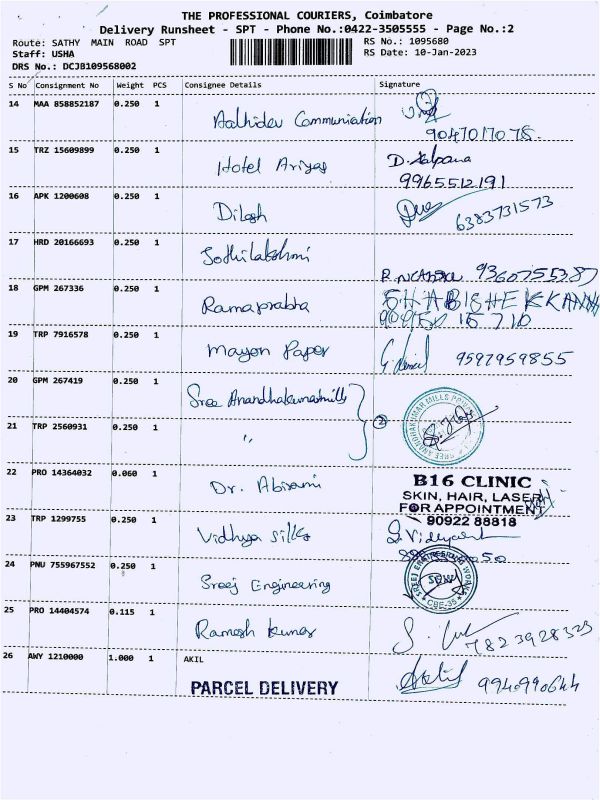 THE PROFESSIONAL COURIERS, Coimbatore
Delivery Runsheet - SPT - Phone No.:0422-3505555 - Page No.:2
Route: SATHY MAIN ROAD SPT RS No.: 1095680
Staff: USHA RS Date: 10-Jan-2023
DRS No.: DCJB109568002
S No Consignment No Weight PCS Consignee Details Signature
14 MAA 858852187 0.250 1 Aathidev Communiation
9047017078.
15 TRZ 15609899 0.250 1 Hotel Ariyas D. Kalpana
9965512191
16 APK 1200608 0.250 1 Dilosh 6383731573
17 HRD 20166693 0.250 1 Jothilakshmi
9360755387
18 GPM 267336 0.250 1 Ramaprabha SHABISHEKKANNA
19 TRP 7916578 0.250 1 Mayon Paper 9597959855
20 GPM 267419 0.250 1 Sree Anandhakumarmills
21 TRP 2560931 0.250 1 〃 2
22 PRO 14364032 0.060 1 Dr. Abirami B16 CLINIC
SKIN, HAIR, LASER
FOR APPOINTMENT
90922 88818
23 TRP 1299755 0.250 1 Vidhya silks
24 PNU 755967552 0.250 1 Sreej Engineering SREEJ ENGINEERING WORKS
SEW
CBE-35
25 PRO 14404574 0.115 1 Ramesh kumar 7823928323
26 AWY 1210000 1.000 1 AKIL Akil 9940990644
PARCEL DELIVERY